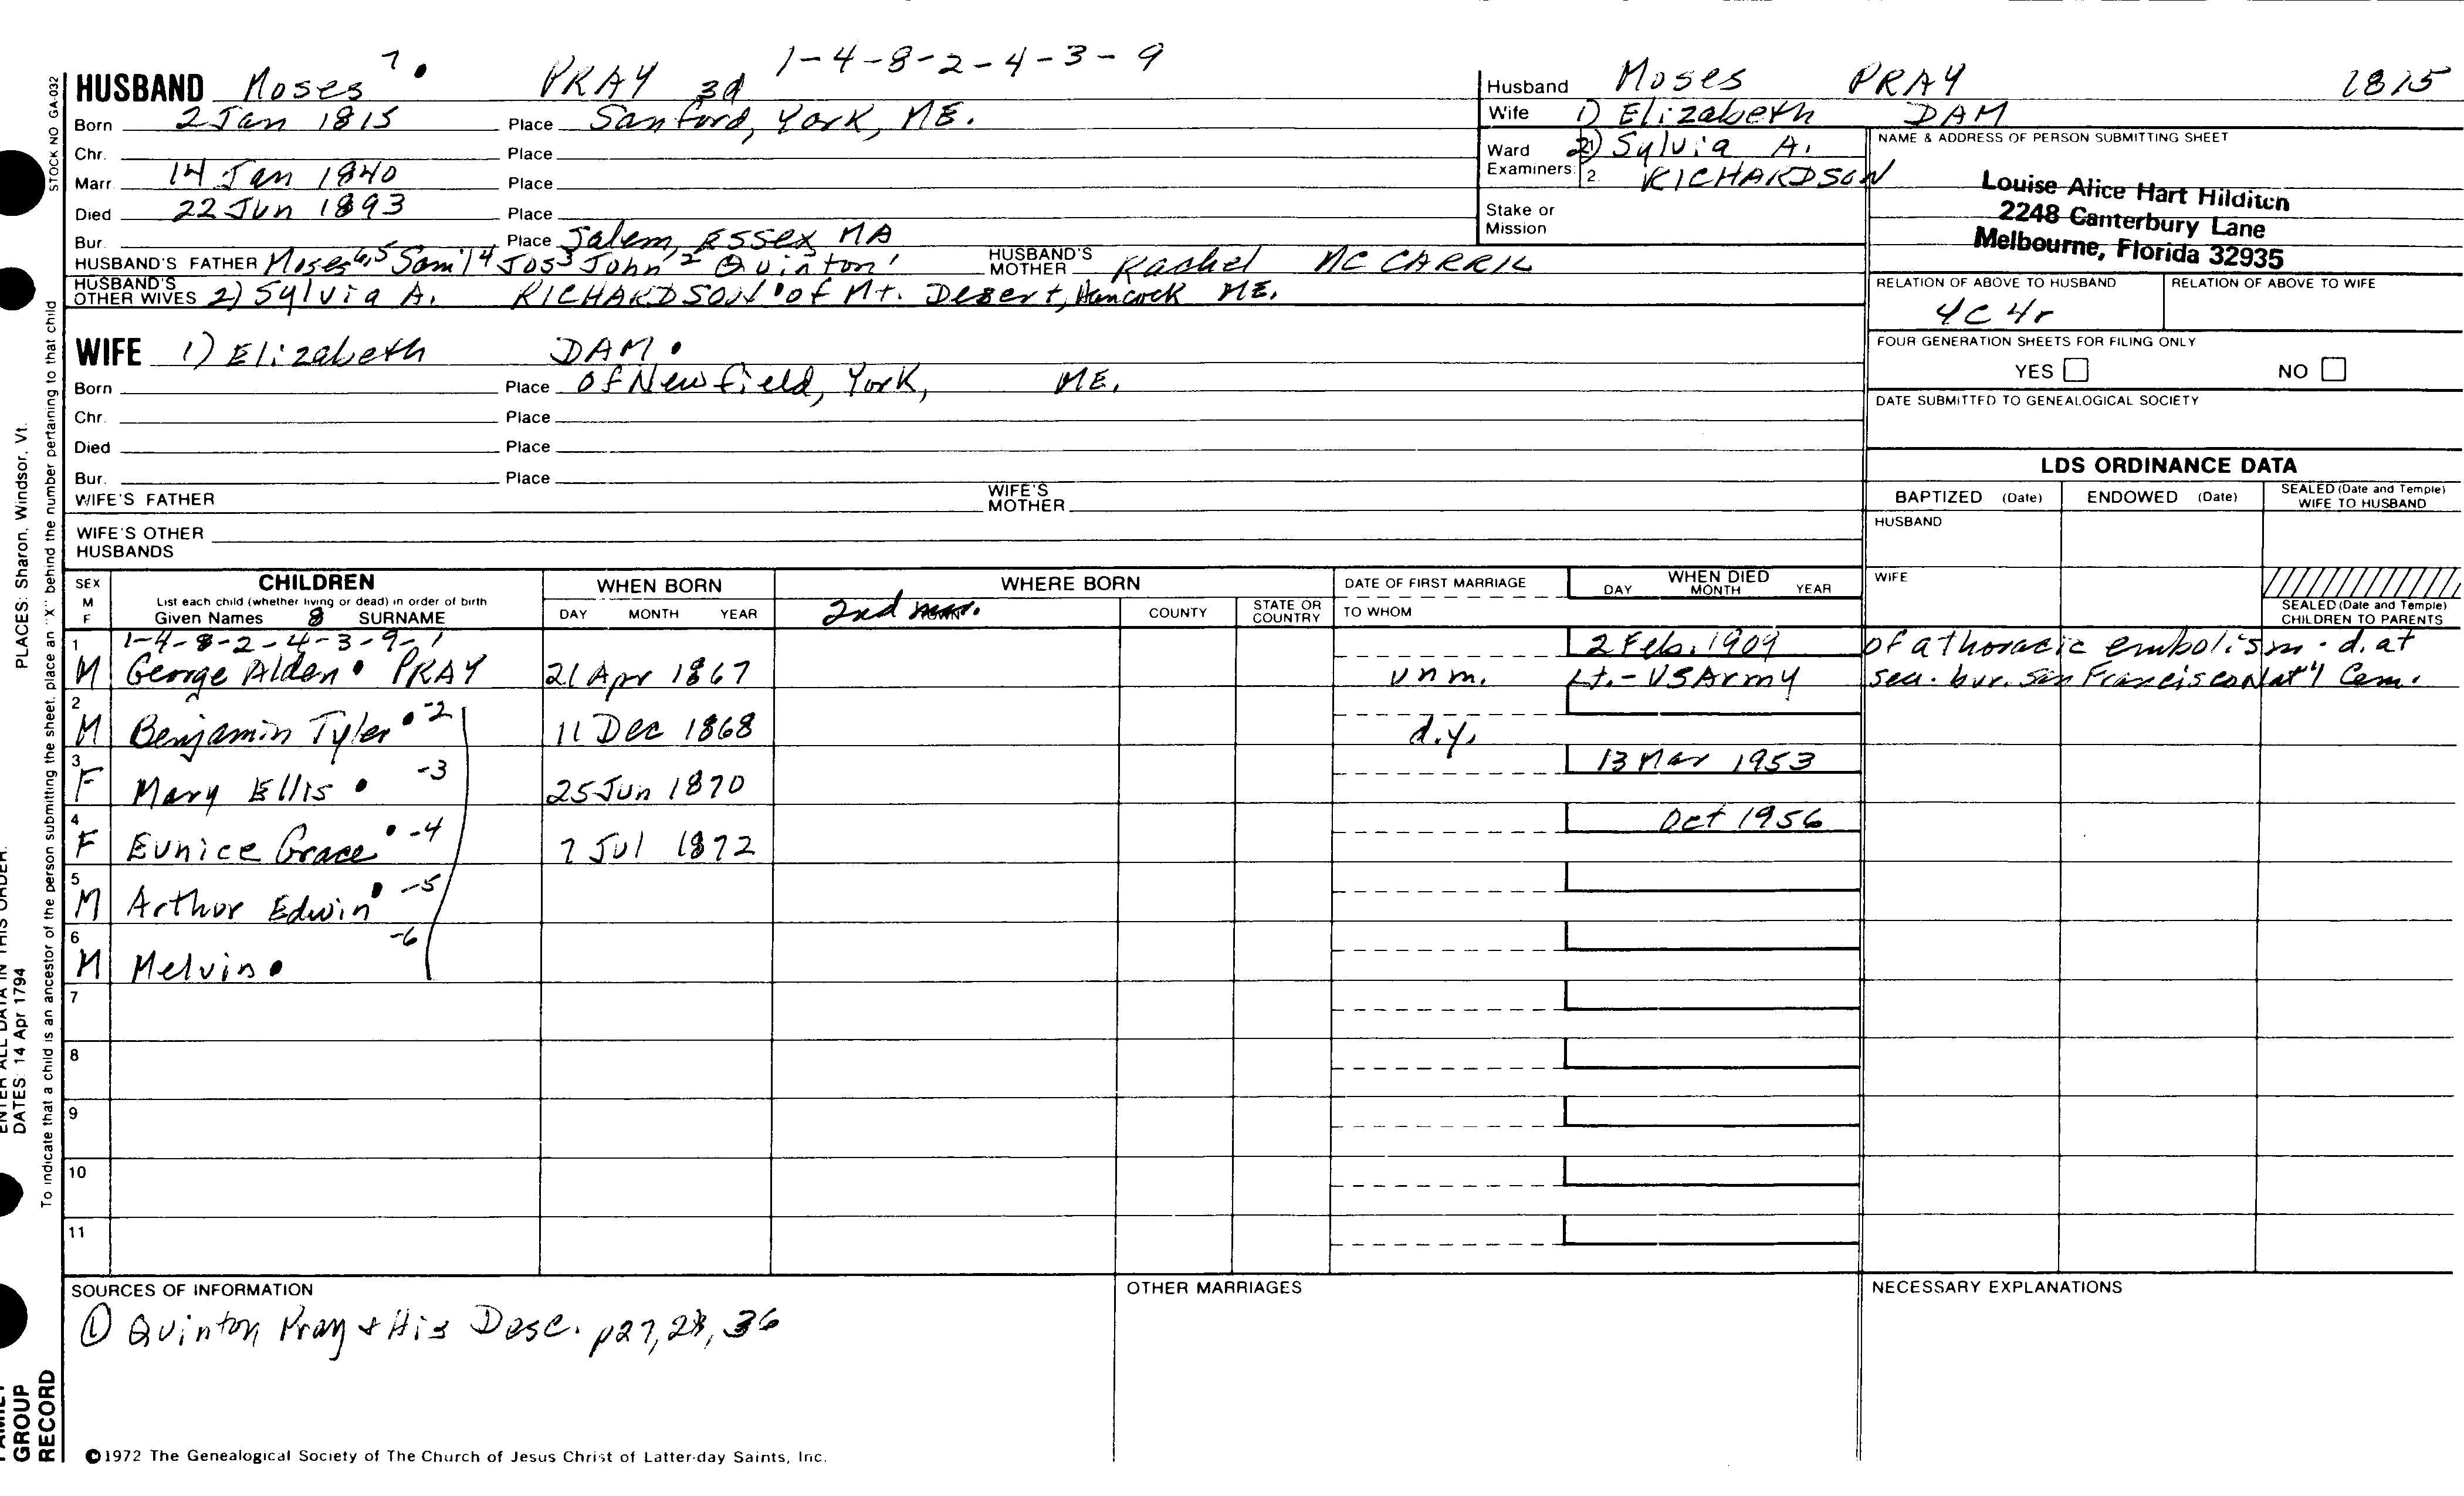 1-4-8-2-4-3-9
HUSBAND Moses 7 PRAY 3d
Born 2 Jan 1815 Place Sanford, York, ME.
Chr. Place
Marr. 14 Jan 1840 Place
Died 22 Jun 1893 Place
Bur. Place Salem, Essex MA
HUSBAND'S FATHER Moses 6,5 Sam'l 4 Jos 3 John 2 Quinton 1 HUSBAND'S MOTHER Rachel
HUSBAND'S OTHER WIVES 2) Sylvia A. RICHARDSON of Mt. Desert, Hancock ME.
WIFE 1) Elizabeth DAM
Born Place of Newfield, York, ME.
Chr. Place
Died Place
Bur. Place
WIFE'S FATHER WIFE'S MOTHER
WIFE'S OTHER HUSBANDS
Husband Moses PRAY 1815
Wife 1) Elizabeth DAM
Ward 2) Sylvia A.
Examiners: 2. RICHARDSON
Stake or Mission
NAME & ADDRESS OF PERSON SUBMITTING SHEET
Louise Alice Hart Hilditch
2248 Canterbury Lane
Melbourne, Florida 32935
RELATION OF ABOVE TO HUSBAND RELATION OF ABOVE TO WIFE
4C 4r
FOUR GENERATION SHEETS FOR FILING ONLY
YES NO
DATE SUBMITTED TO GENEALOGICAL SOCIETY
LDS ORDINANCE DATA
BAPTIZED (Date) ENDOWED (Date) SEALED (Date and Temple) WIFE TO HUSBAND
HUSBAND
WIFE
SEALED (Date and Temple) CHILDREN TO PARENTS
SEX M F CHILDREN WHEN BORN WHERE BORN DATE OF FIRST MARRIAGE WHEN DIED
List each child (whether living or dead) in order of birth
Given Names 8 SURNAME DAY MONTH YEAR 2nd mar. COUNTY STATE OR COUNTRY TO WHOM DAY MONTH YEAR
1 1-4-8-2-4-3-9-1 2 Feb. 1909 of a thoracic embolism. d. at
M George Alden PRAY 21 Apr 1867 unm. Lt.-US Army sea. bur. San Francisco Nat'l Cem.
2 M Benjamin Tyler -2 11 Dec 1868 d.y.
3 F Mary Ellis -3 25 Jun 1870 13 Mar 1953
4 F Eunice Grace -4 7 Jul 1872 Oct 1956
5 M Arthur Edwin -5
6 M Melvin -6
7
8
9
10
11
SOURCES OF INFORMATION OTHER MARRIAGES NECESSARY EXPLANATIONS
① Quinton Pray & His Desc. p27, 28, 36
©1972 The Genealogical Society of The Church of Jesus Christ of Latter-day Saints, Inc.
STOCK NO GA-032
To indicate that a child is an ancestor of the person submitting the sheet, place an "X" behind the number pertaining to that child
PLACES: Sharon, Windsor, Vt.
ENTER ALL DATA IN THIS ORDER:
DATES: 14 Apr 1794
FAMILY
GROUP
RECORD